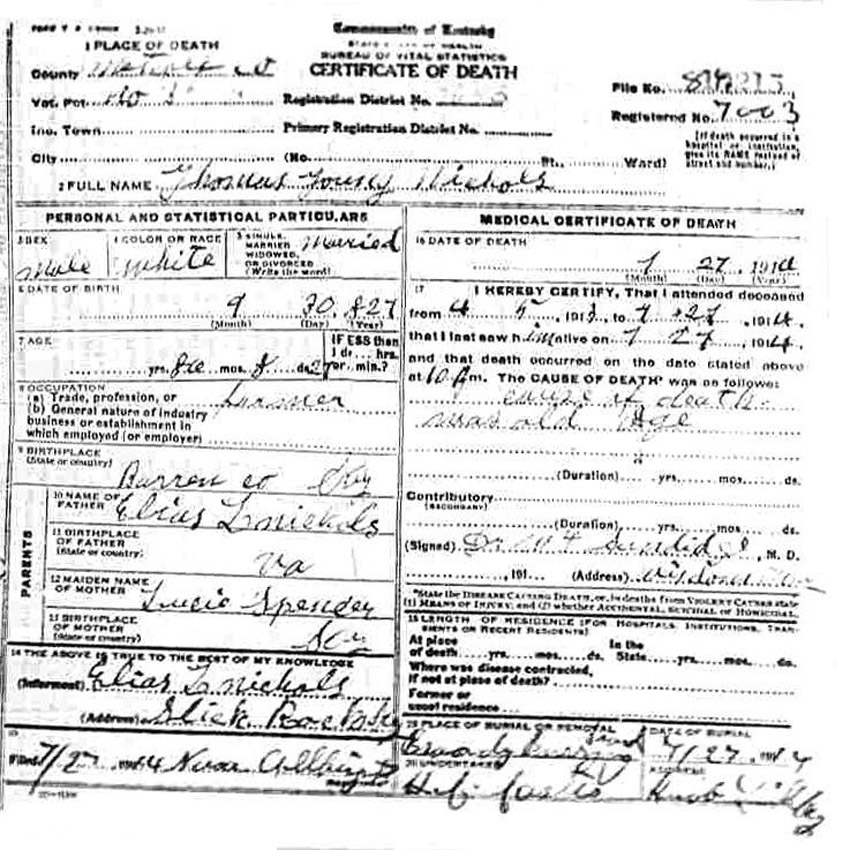 Commonwealth of Kentucky
STATE BOARD OF HEALTH
BUREAU OF VITAL STATISTICS
CERTIFICATE OF DEATH
1 PLACE OF DEATH
County Metcalf Co
Vot. Pct. No 1
Registration District No.
File No.
Registered No. 7003
Inc. Town
Primary Registration District No.
(If death occurred in a hospital or institution, give its NAME instead of street and number.)
City (No. St., Ward)
2 FULL NAME Thomas Young Nichols
PERSONAL AND STATISTICAL PARTICULARS
3 SEX
Male
4 COLOR OR RACE
White
5 SINGLE, MARRIED WIDOWED, OR DIVORCED (Write the word)
Maried
6 DATE OF BIRTH
9 30 827
(Month) (Day) (Year)
7 AGE
yrs. 86 mos. 8 ds.
IF LESS than
1 d... hrs.
or min.?
8 OCCUPATION
(a) Trade, profession, or
(b) General nature of industry
business or establishment in
which employed (or employer)
Farmer
9 BIRTHPLACE
(State or country)
Barren co Ky
PARENTS
10 NAME OF FATHER
Elias L nichols
11 BIRTHPLACE OF FATHER
(State or country)
Va
12 MAIDEN NAME OF MOTHER
Lucie
13 BIRTHPLACE OF MOTHER
(State or country)
14 THE ABOVE IS TRUE TO THE BEST OF MY KNOWLEDGE
(Informant) Elias L nichols
(Address) Slick Rock Ky
15
Filed 7/27 1914
MEDICAL CERTIFICATE OF DEATH
16 DATE OF DEATH
7 27, 1914
(Month) (Day) (Year)
17 I HEREBY CERTIFY, That I attended deceased
from 4 5, 1913, to 7 27, 1914,
that I last saw him alive on 7 27, 1914,
and that death occurred on the date stated above
at 10 m. The CAUSE OF DEATH* was as follows:
cause of death
was old Age
(Duration) yrs. mos. ds.
Contributory
(SECONDARY)
(Duration) yrs. mos. ds.
(Signed) Dr. M. D.
, 191 (Address)
*State the DISEASE CAUSING DEATH, or, in deaths from VIOLENT CAUSES state
(1) MEANS OF INJURY; and (2) whether ACCIDENTAL, SUICIDAL or HOMICIDAL.
18 LENGTH OF RESIDENCE (FOR HOSPITALS, INSTITUTIONS, TRANSIENTS OR RECENT RESIDENTS)
At place of death yrs. mos. ds. In the State yrs. mos. ds.
Where was disease contracted,
if not at place of death?
Former or
usual residence
19 PLACE OF BURIAL OR REMOVAL
DATE OF BURIAL
7/27 1914
20 UNDERTAKER
ADDRESS